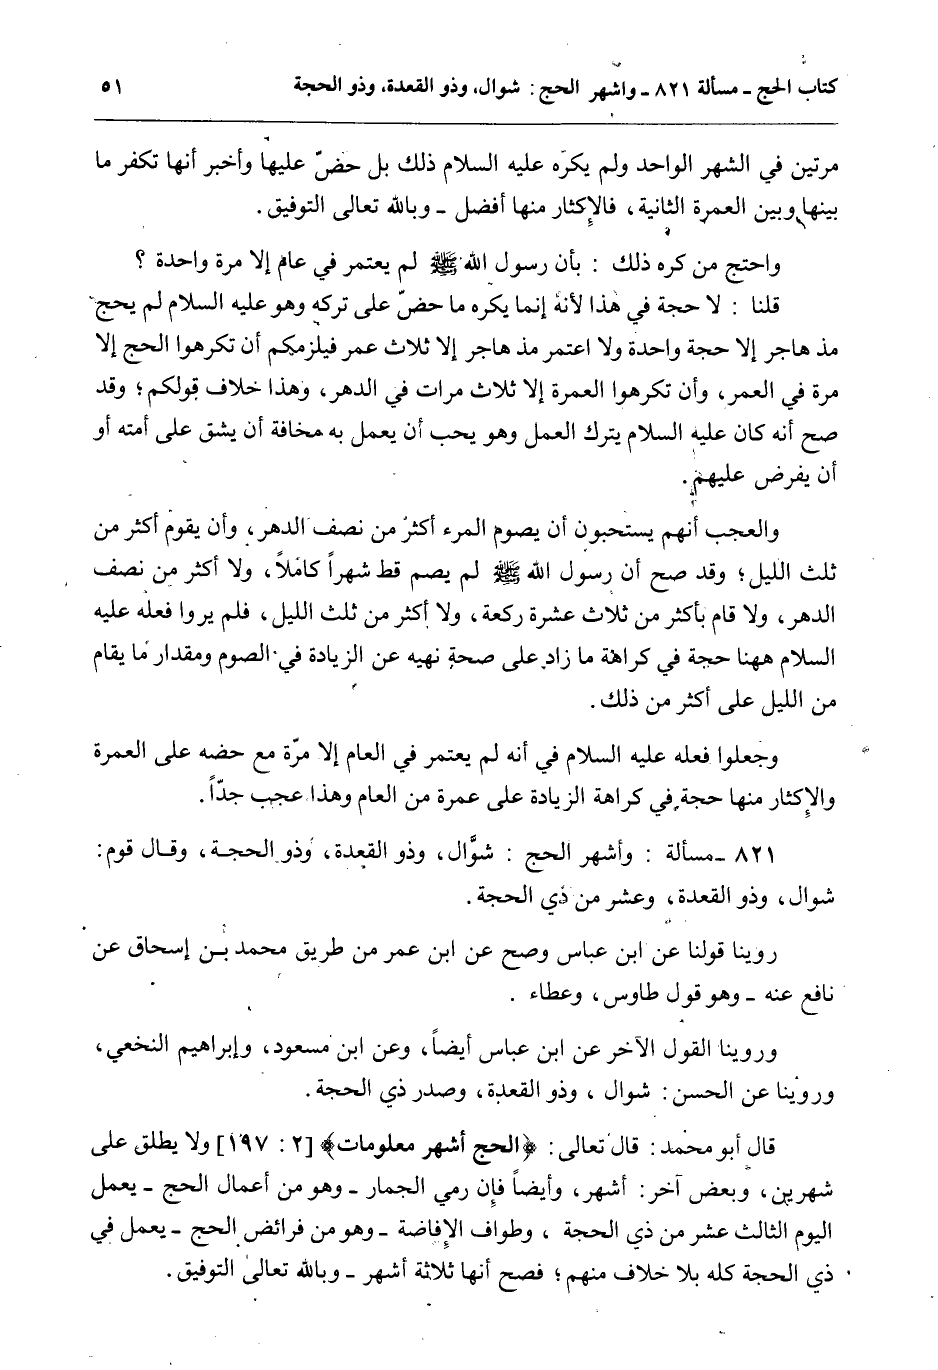 كتاب الحج ـ مسألة ٨٢١ ـ وأشهر الحج : شوال، وذو القعدة، وذو الحجة ٥١
مرتين في الشهر الواحد ولم يكره عليه السلام ذلك بل حضّ عليها وأخبر أنها تكفر ما
بينها وبين العمرة الثانية، فالإكثار منها أفضل ـ وبالله تعالى التوفيق.
واحتج من كره ذلك : بأن رسول الله ﷺ لم يعتمر في عام إلا مرة واحدة ؟
قلنا : لا حجة في هذا لأنه إنما يكره ما حضّ على تركه وهو عليه السلام لم يحج
مذ هاجر إلا حجة واحدة ولا اعتمر مذ هاجر إلا ثلاث عمر فيلزمكم أن تكرهوا الحج إلا
مرة في العمر، وأن تكرهوا العمرة إلا ثلاث مرات في الدهر، وهذا خلاف قولكم؛ وقد
صح أنه كان عليه السلام يترك العمل وهو يحب أن يعمل به مخافة أن يشق على أمته أو
أن يفرض عليهم.
والعجب أنهم يستحبون أن يصوم المرء أكثر من نصف الدهر، وأن يقوم أكثر من
ثلث الليل؛ وقد صح أن رسول الله ﷺ لم يصم قط شهراً كاملاً، ولا أكثر من نصف
الدهر، ولا قام بأكثر من ثلاث عشرة ركعة، ولا أكثر من ثلث الليل، فلم يروا فعله عليه
السلام ههنا حجة في كراهة ما زاد على صحة نهيه عن الزيادة في الصوم ومقدار ما يقام
من الليل على أكثر من ذلك.
وجعلوا فعله عليه السلام في أنه لم يعتمر في العام إلا مرّة مع حضه على العمرة
والإكثار منها حجة في كراهة الزيادة على عمرة من العام وهذا عجب جدّاً.
٨٢١ ـ مسألة : وأشهر الحج : شوَّال، وذو القعدة، وذو الحجة، وقال قوم:
شوال، وذو القعدة، وعشر من ذي الحجة.
روينا قولنا عن ابن عباس وصح عن ابن عمر من طريق محمد بن إسحاق عن
نافع عنه ـ وهو قول طاوس، وعطاء .
وروينا القول الآخر عن ابن عباس أيضاً، وعن ابن مسعود، وإبراهيم النخعي،
وروينا عن الحسن: شوال ، وذو القعدة، وصدر ذي الحجة.
قال أبو محمد: قال تعالى: ﴿الحج أشهر معلومات﴾ [٢: ١٩٧] ولا يطلق على
شهرين، وبعض آخر: أشهر، وأيضاً فإن رمي الجمار ـ وهو من أعمال الحج ـ يعمل
اليوم الثالث عشر من ذي الحجة ، وطواف الإفاضة ـ وهو من فرائض الحج ـ يعمل في
ذي الحجة كله بلا خلاف منهم؛ فصح أنها ثلاثة أشهر ـ وبالله تعالى التوفيق.